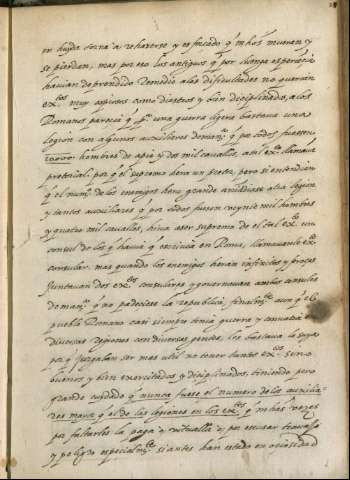 en huyda torna a rehazerse y es forçado q̃ m̃chos mueran y
se pierdan, mas por esto los antiguos q̃ por luenga esperiencia
havian deprendido remedio a las dificultades no querian
ex.tos muy copiosos como diestros y bien diciplinados, a los
Romanos pareçia q̃ p.a una guerra ligera bastava una
legion con algunos auxiliares de man.a q̃ por todos fuessen
hombres de a pie y dos mil cavallos, a tal ex.to llamava
pretorial: por q̃ el supremo hera un pretor, pero si entendian
q̃ el num.o de los enemigos hera grande añadiase otra legion
y tantos auxiliares q̃ por todos fuesen veynte mil hombres
y quatro mil cavallos, hiva a ser supremo de el tal ex.to un
consul de los q̃ havia q̃ residia en Roma, llamavanle ex.to
consular. mas quando los enemigos heran infinitos y feroces
Juntavan dos ex.tos consulares y governavan ambos consules
de man.a q̃ no padeciese la republica, finalm.te aun q̃ el
pueblo Romano casi siempre tenia guerra y combatia en
diversas regiones con diversas gentes, les bastava lo suyo
por q̃ juzgaban ser mas util no tener tantos ex.tos sino
buenos y bien exercitados y diciplinados, teniendo pero
grande cuydado q̃ nunca fuese el numero de los auxilia-
res mayor q̃ el de las legiones en los ex.tos q̃ m̃chas vezes
por faltarles la paga o vitualla o por escusar travajo
y peligro especialm.te si antes han estado en ociosidad